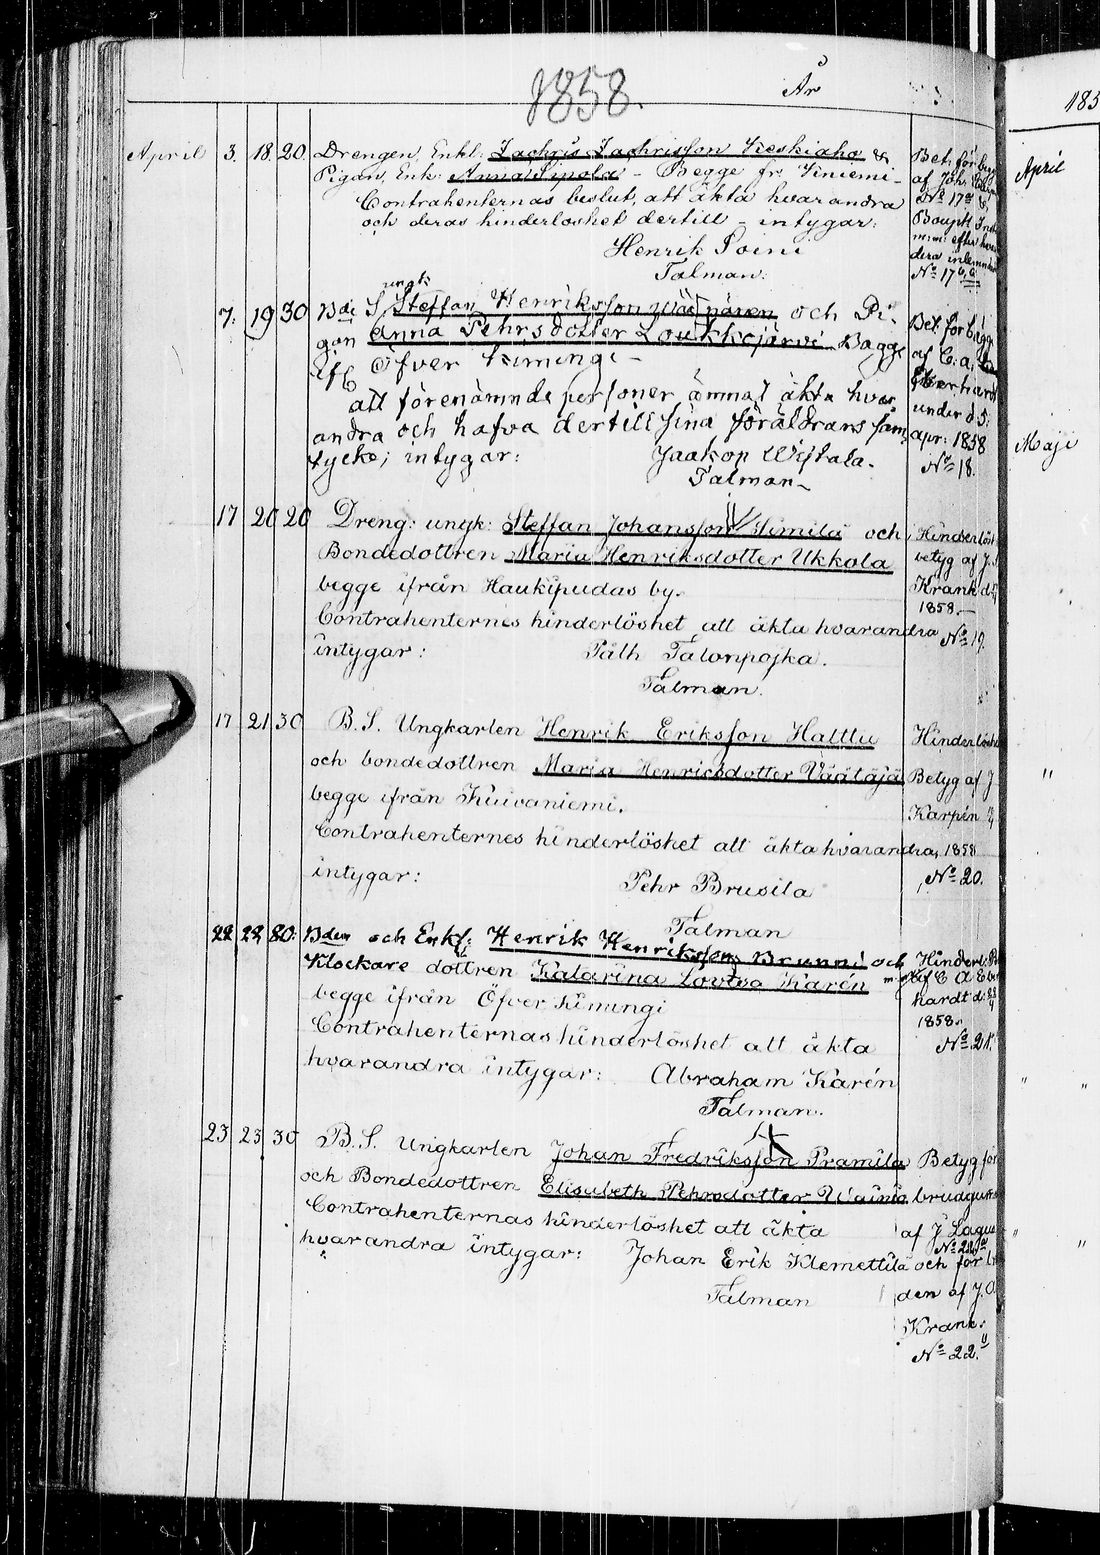 1858. År
April 3. 18. 20. Drengen, Enkl: Zachris Zachrisson Keskiaho &
Pigan, Enk: Anna Sipola - Begge fr. Kiniemi -
Contrahenternas beslut, att äkta hvarandra
och deras hinderloshet dertill - intygar:
Henrik Soini
Talman:
Bet. för
af Joh.
No 17 &
efter
No 17
7: 19 30 Bde S ungk Steffan Henriksson och Pi-
gan Anna Pehrsdotter Loukkojärvi Bagge
Öfver Kimingi -
att förenämnde personer ämnat äkta hvar
andra och hafva dertill sina föräldrars sam
tycke; intygar: Jaakop
Talman -
Bet. för bägge
af C. a.
Eberhardt
under d. 5:
apr: 1858
No 18.
17 20 20 Dreng: ungk: Steffan Johansson Kimilä och
Bondedottren Maria Henriksdotter Ukkola
begge ifrån Haukipudas by.
Contrahenternes hinderlöshet att äkta hvarandra
intygar: Påth Talonpojka.
Talman.
Hinderlös
betyg af J.
Krank d.
1858.
No 19.
17 21 30 B.S. Ungkarlen Henrik Eriksson Halttu
och bondedottren Maria Henricsdotter Väätäjä
begge ifrån Kuivaniemi.
Contrahenternes hinderlöshet att äkta hvarandra,
intygar: Pehr Brusila
Talman
Hinderlösh
Betyg af J
Karpén
1858
No 20.
22 22 80: Bden och Enkl: Henrik Henriksson Brunni och
Klockare dottren Katarina Lovisa Karén
begge ifrån Öfver Kimingi
Contrahenternas hinderlöshet att äkta
hvarandra intygar: Abraham Karén
Talman.
Hinderl:
af C A Eber
hardt d:
1858.
No 21.
23 23 30 B.S. Ungkarlen Johan Fredriksson Pramila
och Bondedottren Elisabeth Pehrsdotter Wainio
Contrahenternas hinderlöshet att äkta
hvarandra intygar: Johan Erik Klemettilä
Talman
Betyg för
brudgum
af J Lagus
No 22
och för br
den af J. O.
Krank.
No 22.
185
April
Maji
"
" "
" "